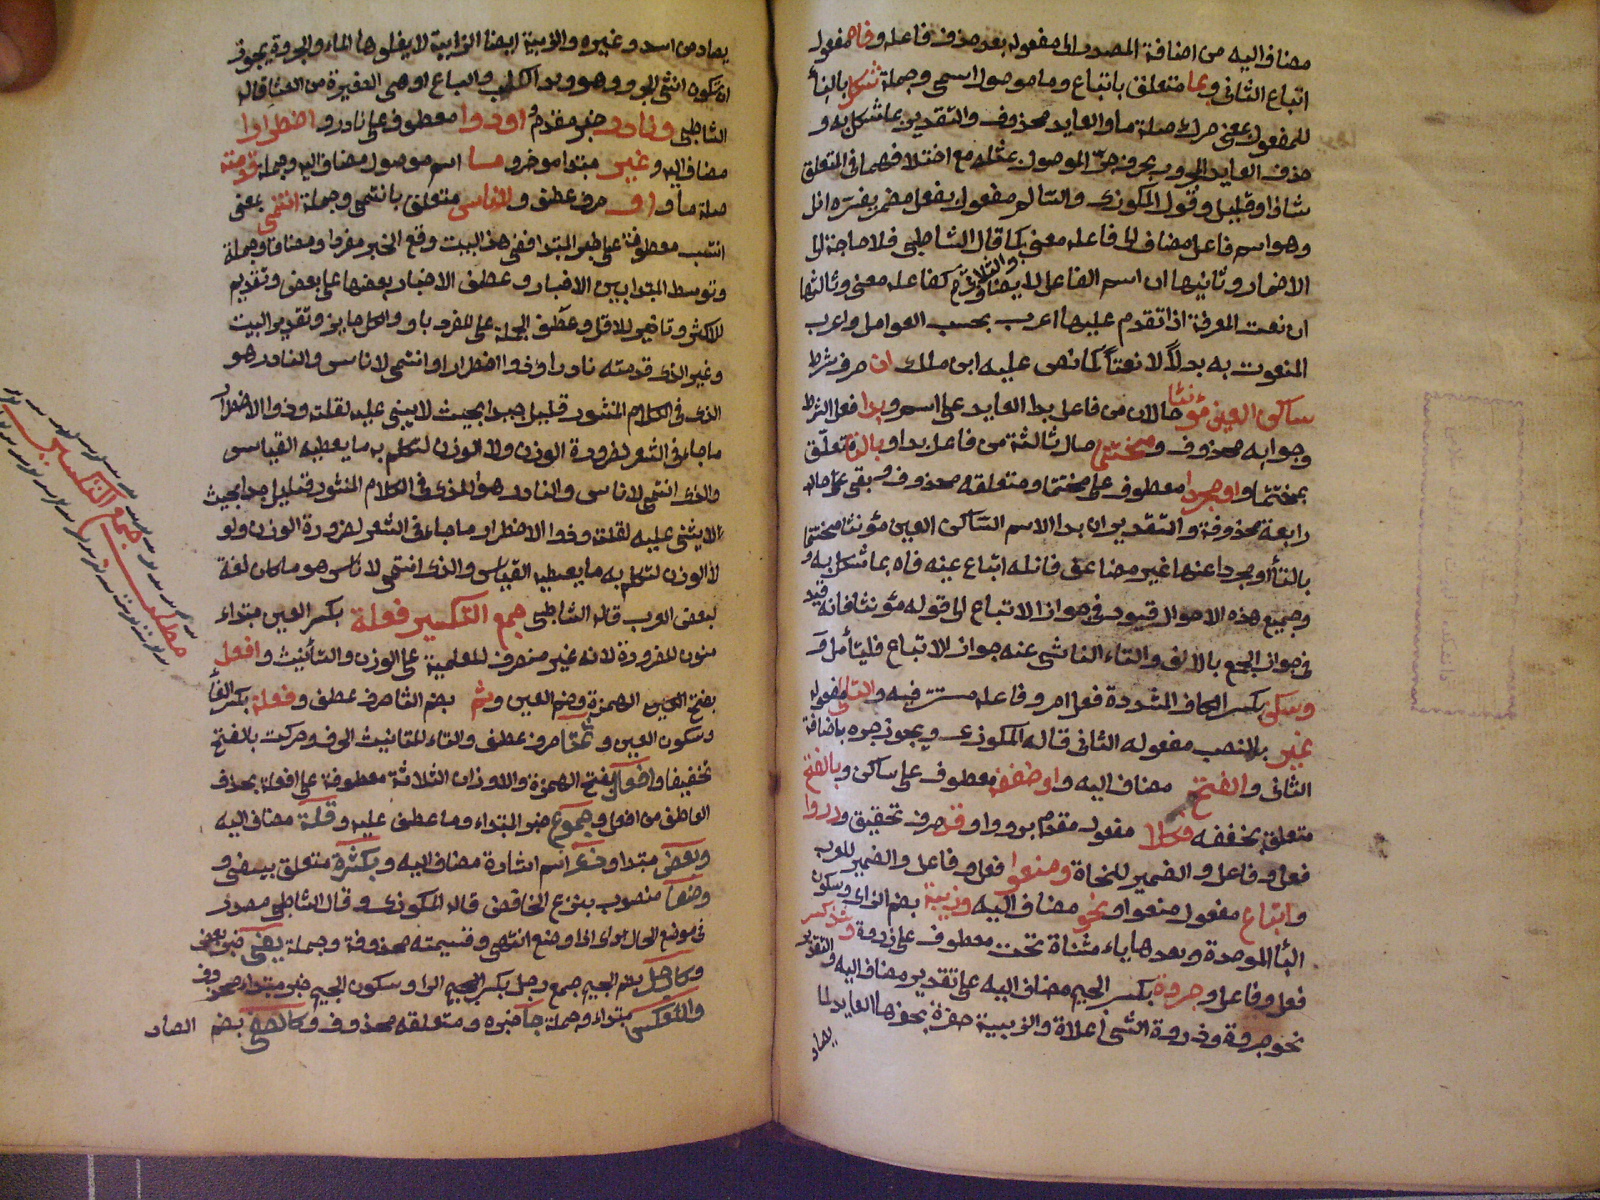 مضاف اليه من اضافة المصدر الى مفعوله بعد حذف فاعله وفاه مفعول
اتباع الثاني وبما متعلق باتباع وما موصول اسمي وجملة شكل بالبنا
للمفعول بمعنى حرك صلة ما والعايد محذوف والتقدير بما شكل به و
حذف العايد المجرور بحرف جر الموصول بمثله مع اختلافهما في المتعلق
شاذ او قليل وقول المكودي والسالم مفعول بفعل مضمر يفسره انل
وهو اسم فاعل مضاف الى فاعله معنى كما قال الشاطبي فلا حاجة الى
الاضمار وثانيها ان اسم الفاعل لا يضاف كفاعله معنى وثالثها
ان نعت المعرفة اذا تقدم عليها اعرب بحسب العوامل واعرب
المنعوت به بدلا لا نعتا كما نص عليه ابن مالك ان حرف شرط
ساكن العين مؤنثا حالان من فاعل بدا العايد على اسم وبدا فعل الشرط
وجوابه محذوف ومختتما حال ثالثة من فاعل بدا وبالتا متعلق
بمختتما او مجردا معطوف على مختتما ومتعلقه محذوف وبقي حال
رابعة محذوفة والتقدير ان بدا الاسم الساكن العين مؤنثا مختتما
بالتا او مجردا عنها غير مضاعف فانله اتباع عينه فاه بما شكل به و
وجميع هذه الاحوال قيود في جواز الاتباع الا قوله مؤنثا فانه قيد
في جواز الجمع بالالف والتاء الناشي عنه جواز الاتباع فليتأمل
وسكن بكسر الكاف المشددة فعل امر وفاعله مستتر فيه والتالي مفعوله
غير بالنصب مفعوله الثاني قاله المكودي ويجوز جره باضافة
الثاني والفتح مضاف اليه او خففه معطوف على ساكن وبالفتح
متعلق بخففه وكلا مفعول مقدم برووا وقد حرف تحقيق ورووا
فعل وفاعل والضمير للنحاة ومنعوا فعل وفاعل والضمير للعرب
واتباع مفعول منعوا ونحو مضاف اليه وزبية بضم الزاي وسكون
البا الموحدة وبعدها ياء مثناة تحت معطوف على ذروة وشذ كسر
فعل وفاعل وجروة بكسر الجيم مضاف اليه على تقدير مضاف اليه والتقدير
نحو جروة وذروة الشي اعلاه والزبية حفرة يحفرها العايد لما
يصاد
يصاد من اسد وغيره والزبية ايضا الرابية لا يعلوها الماء والجروة يجوز
ان تكون انثى الجرو وهو ولد الكلب والسباع او هي الصغيرة من القثا قاله
الشاطبي ونادر خبر مقدم او ذو معطوف على نادر واضطرار
مضاف اليه وغير مبتدا مؤخر وما اسم موصول مضاف اليه وجملة قدمته
صلة ما واو حرف عطف ولاناس متعلق بانتمى وجملة انتمى بمعنى
انتسب معطوفة على خبر المبتدا ففي هذا البيت وقع الخبر مفردا ومضافا وجملة
وتوسط المبتدا بين الاخبار وعطف الاخبار بعضها على بعض وتقديم
الاكثر وتاخير الاقل وعطف الجملة على المفرد باو والكل جايز وتقدير البيت
وغير الذي قدمته نادر او ذو اضطرار او انتمى لاناس والنادر هو
الذي في الكلام المنثور قليل جدا بحيث لا يبنى عليه لقلته وذو الاضطرار
ما جا في الشعر لضرورة الوزن ولولا الوزن لتكلم به ما يعطيه القياس
والذي انتمى لاناس والنادر هو الذي في الكلام المنثور قليل جدا بحيث
لا يبنى عليه لقلته وذو الاضطرار ما جاء في الشعر لضرورة الوزن ولو
لا الوزن لتكلم به ما يعطيه القياس والذي انتمى لاناس هو ما كان لغة
لبعض العرب قاله الشاطبي جمع التكسير افعلة بكسر العين مبتداء
منون للضرورة لانه غير منصرف للعلمية على الوزن والتأنيث وافعل
بفتح الهمزة وضم العين وثم بضم الثا حرف عطف وفعلة بكسر الفا
وسكون العين وثمت حرف عطف والتاء لتانيث الحرف وحركت بالفتح
تخفيفا وافعال بفتح الهمزة والاوزان الثلاثة معطوفة على افعلة بحذف
العاطف من افعل وجموع خبر المبتداء وما عطف عليه وقلة مضاف اليه
وبعض مبتدا وذي اسم اشارة مضاف اليه وبكثرة متعلق بيفي و
وضعا منصوب بنزع الخافض قاله المكودي وقال الشاطبي مصدر
في موضع الحال اي ذا وضع انتهى وقسيمته محذوفة وجملة يفي خبر بعض
وكارجل بضم الجيم جمع رجل بكسر الرا وسكون الجيم خبر مبتداء محذوف
والعكس مبتداء وجملة جا خبره ومتعلقه محذوف وكالصفي بضم الصاد
مطلب جمع التكسير